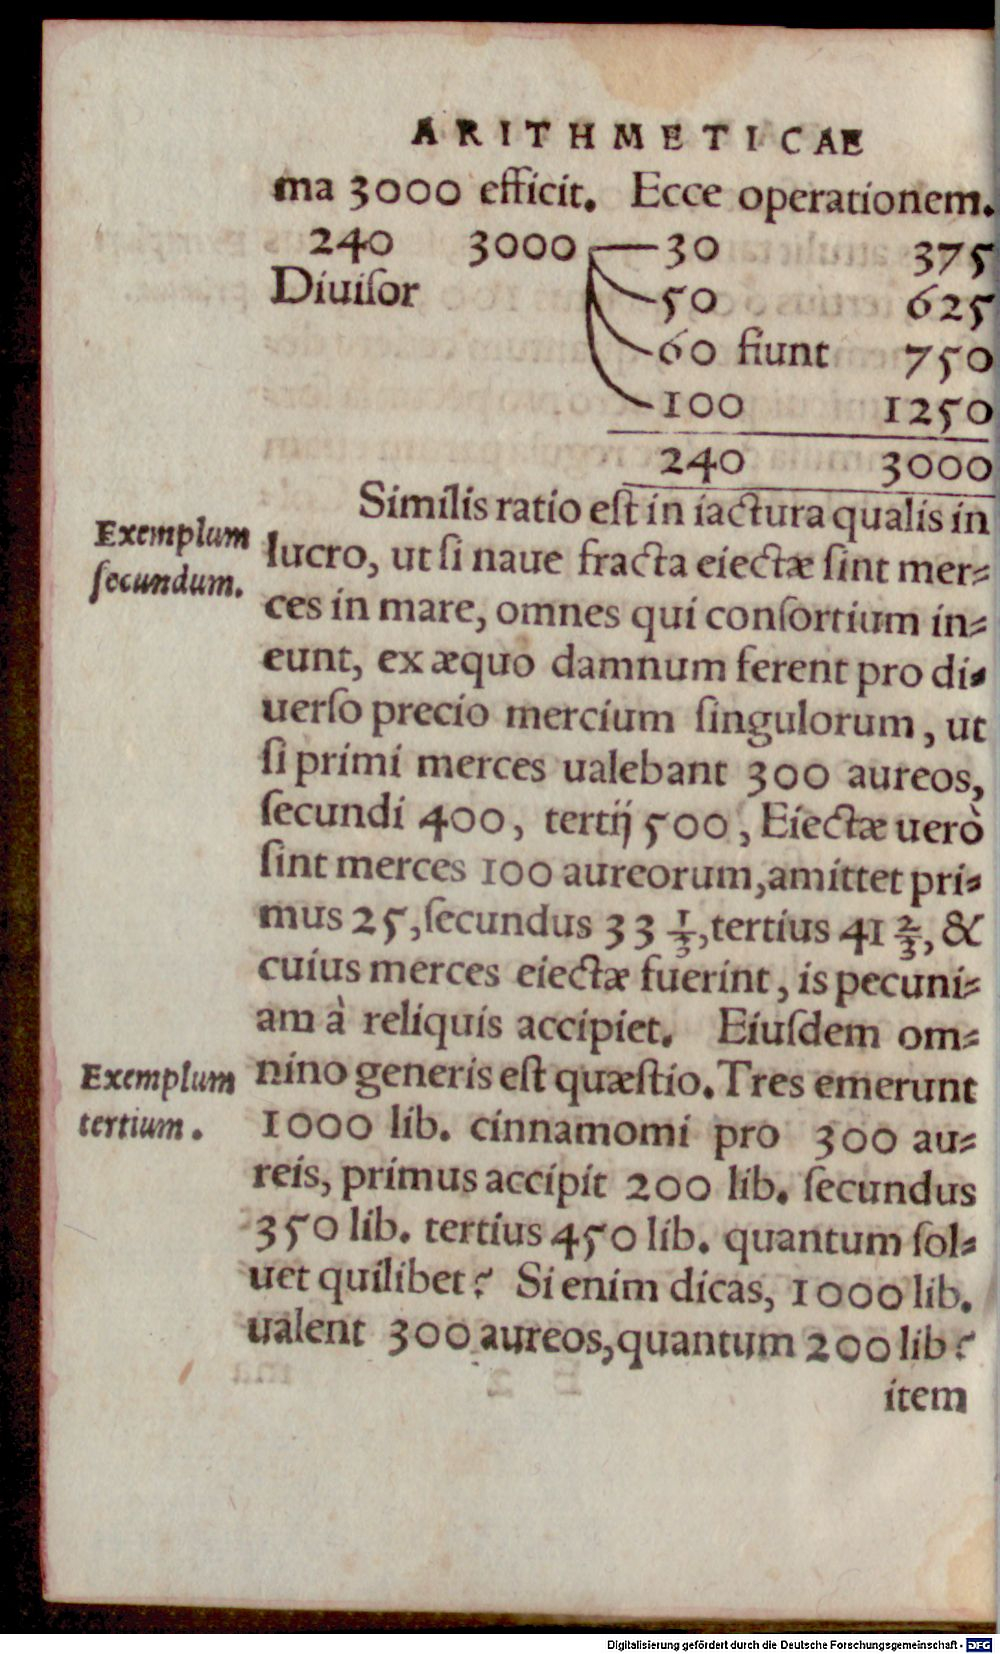 ARITHMETICAE
ma 3000 efficit. Ecce operationem.
240 3000 30 375
Diuiſor 50 625
60 fiunt 750
100 1250
240 3000
Similis ratio eſt in iactura qualis in
Exemplum ſecundum.
lucro, ut ſi naue fracta eiectæ ſint mer⸗
ces in mare, omnes qui conſortium in⸗
eunt, ex æquo damnum ferent pro di⸗
uerſo precio mercium ſingulorum, ut
ſi primi merces ualebant 300 aureos,
ſecundi 400, tertij 500, Eiectæ uerò
ſint merces 100 aureorum, amittet pri⸗
mus 25, ſecundus 33 1/3, tertius 41 2/3, &
cuius merces eiectæ fuerint, is pecuni⸗
am à reliquis accipiet. Eiuſdem om⸗
Exemplum tertium.
nino generis eſt quæſtio. Tres emerunt
1000 lib. cinnamomi pro 300 au⸗
reis, primus accipit 200 lib. ſecundus
350 lib. tertius 450 lib. quantum ſol⸗
uet quilibet? Si enim dicas, 1000 lib.
ualent 300 aureos, quantum 200 lib?
item
Digitalisierung gefördert durch die Deutsche Forschungsgemeinschaft - DFG